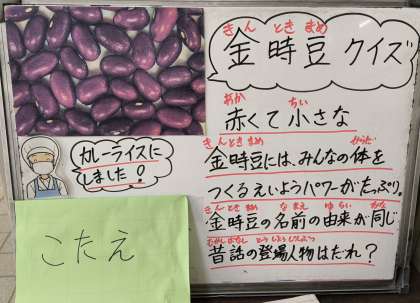 きん とき まめ
金時豆 クイズ
あか ちい
赤くて小さな
きん とき まめ からだ
金時豆には、みんなの体を
つくるえいようパワーがたっぷり。
きん とき まめ な まえ ゆ らい おな
金時豆の名前の由来が同じ
むかしばなし とうじょうじんぶつ
昔話の登場人物はだれ?
カレーライスに
しました!
こたえ